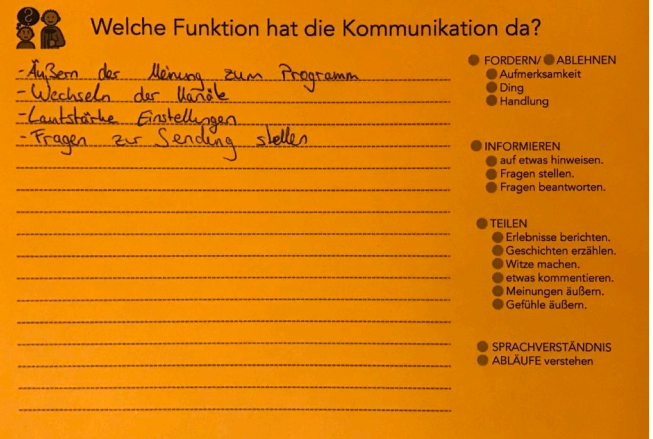 Welche Funktion hat die Kommunikation da?
- Äußern der Meinung zum Programm
- Wechseln der Kanäle
- Lautstärke Einstellungen
- Fragen zur Sendung stellen
FORDERN/ ABLEHNEN
Aufmerksamkeit
Ding
Handlung
INFORMIEREN
auf etwas hinweisen.
Fragen stellen.
Fragen beantworten.
TEILEN
Erlebnisse berichten.
Geschichten erzählen.
Witze machen.
etwas kommentieren.
Meinungen äußern.
Gefühle äußern.
SPRACHVERSTÄNDNIS
ABLÄUFE verstehen